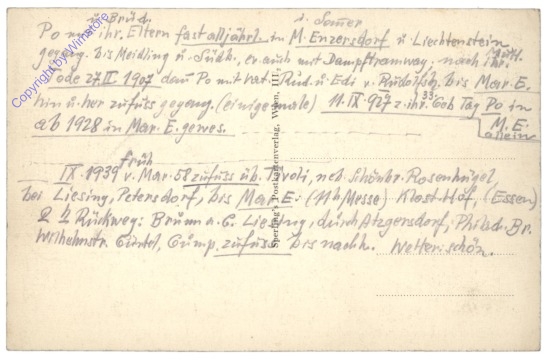 u. Brüd. i. Somer
Po mit ihr. Eltern fast alljährl. in M. Enzersdorf u. Liechtenstein
gegang. bis Meidling u. Südb., er auch mit Dampftramway; nach ihr.
Tode 27.II.1907 dan Po mit Vat. Rud. u. Edi v. bis Mar-E.
hin u. her zufuss gegang. (einige male) 11.IX.927 z. ihr. 33. Geb Tag Po in
ab 1928 in Mar. E. gewes. M. E. allein
früh
IX.1939 v. Mar. 58 zufuss üb. Tivoli, neb. Schönbr. Rosenhügel,
bei Liesing, Petersdorf, bis Mar E. (11h Messe) Klost. Hof, (Essen)
2 h Rückweg: Brunn a. G. Liesing, durch Atzgersdorf, Philad. Br.
Wilhelmstr. Gürtel, Gump. zufuss bis nachh. Wetter: schön.
Sperling's Postkartenverlag, Wien, III.
Copyright by Winstore